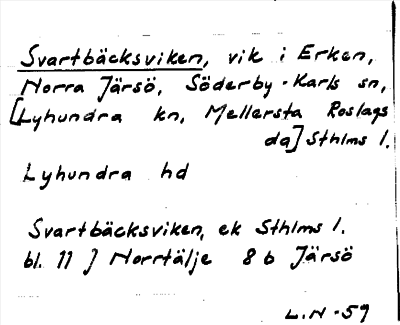 Svartbäcksviken, vik i Erken,
Norra Järsö, Söderby-Karls sn,
[Lyhundra kn, Mellersta Roslags
da] Sthlms l.
Lyhundra hd
Svartbäcksviken, ek Sthlms l.
bl. 11 J Norrtälje 8 b Järsö
L.N-59